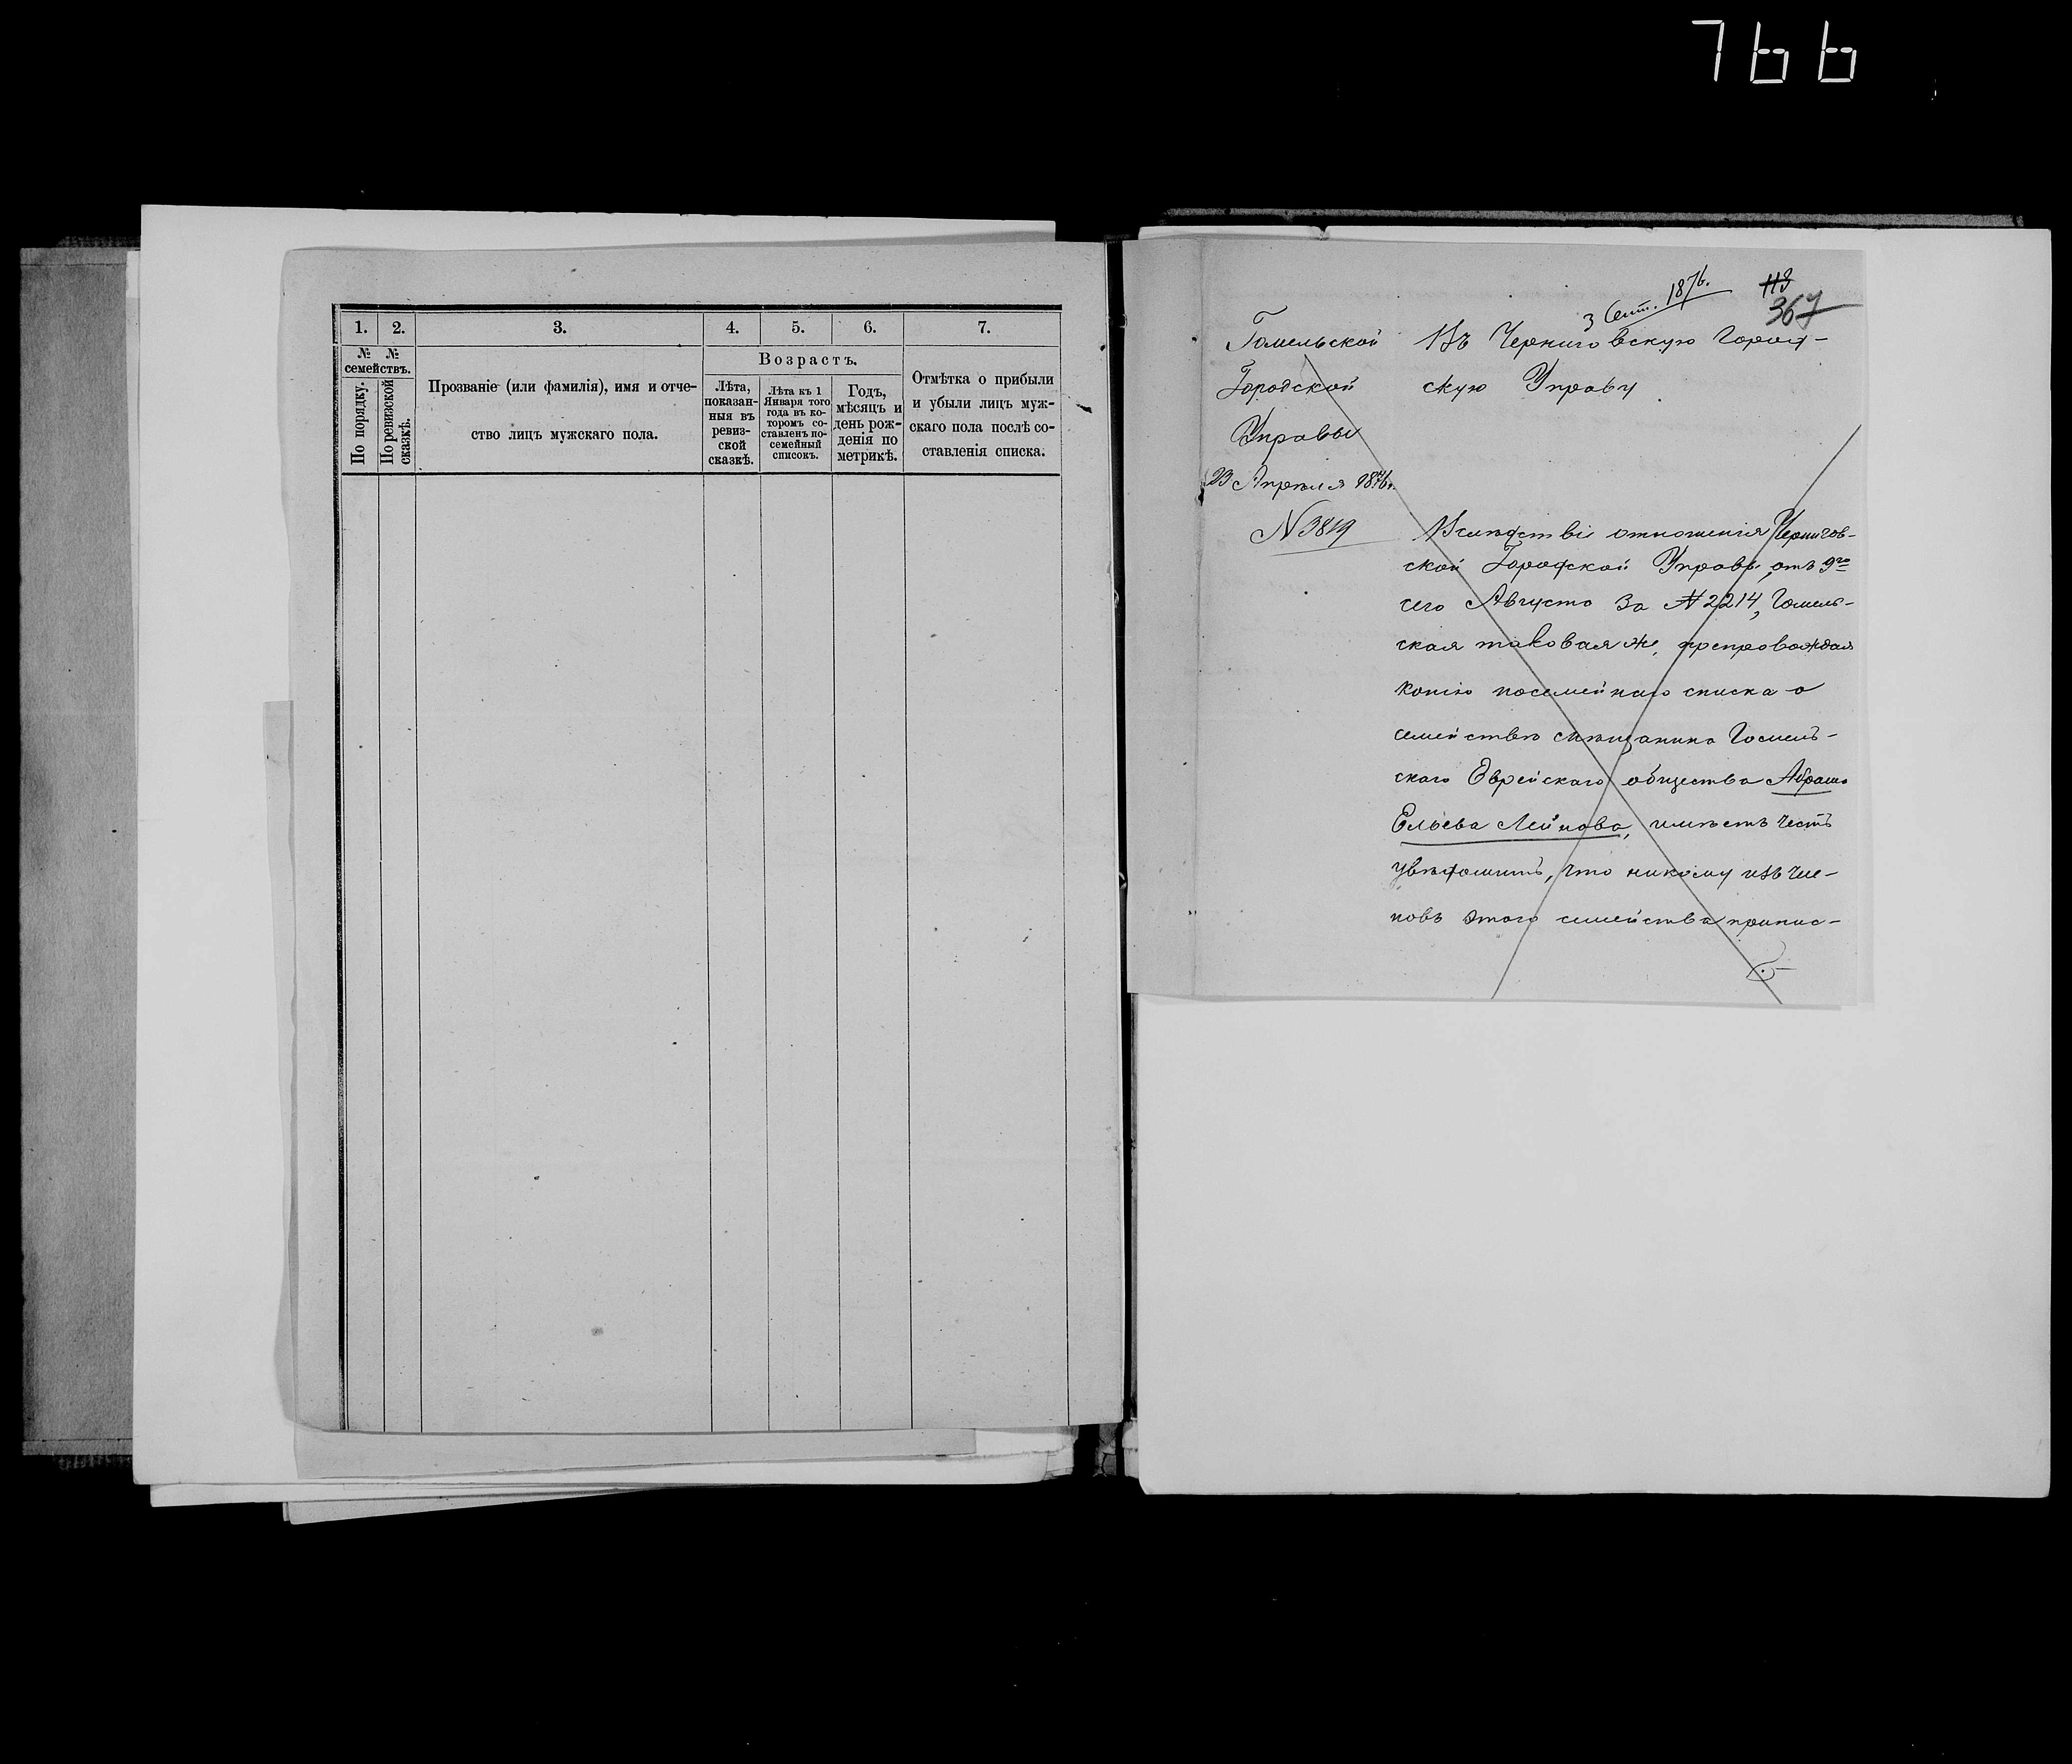 766
1.
2.
3.
4.
5.
6.
7.
№ №
семействъ.
По порядку.
По ревизской
сказкѣ.
Прозваніе (или фамилія), имя и отче-
ство лицъ мужскаго пола.
Возрастъ.
Лѣта,
показан-
ныя въ
ревиз-
ской
сказкѣ.
Лѣта къ 1
Января того
года въ ко-
торомъ со-
ставленъ по-
семейный
списокъ.
Годъ,
мѣсяцъ и
день рож-
денія по
метрикѣ.
Отмѣтка о прибыли
и убыли лицъ муж-
скаго пола послѣ со-
ставленія списка.
3 Сент. 1876.
113
367
Гомельской
Городской
Управы
23 Апрѣля 1876г.
N 3819
Въ Черниговскую Город-
скую Управу
Вслѣдствіе отношенія Чернигов-
ской Городской Управы, отъ 9го
сего Августа за № 2214, Гомель-
ская таковая же, препровождая
копію посемейнаго списка о
семействѣ мѣщанина Гомель-
скаго Еврейскаго общества Абрама
Ельева Лейнова, имѣетъ честь
увѣдомить, что никому изъ чле-
новъ этого семейства припис-